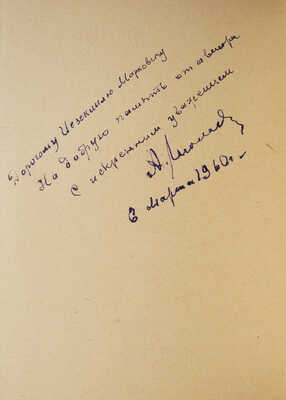 Дорогому Иезекиилю Марковичу
На добрую память от автора
С искренним уважением
6 марта 1960 г.